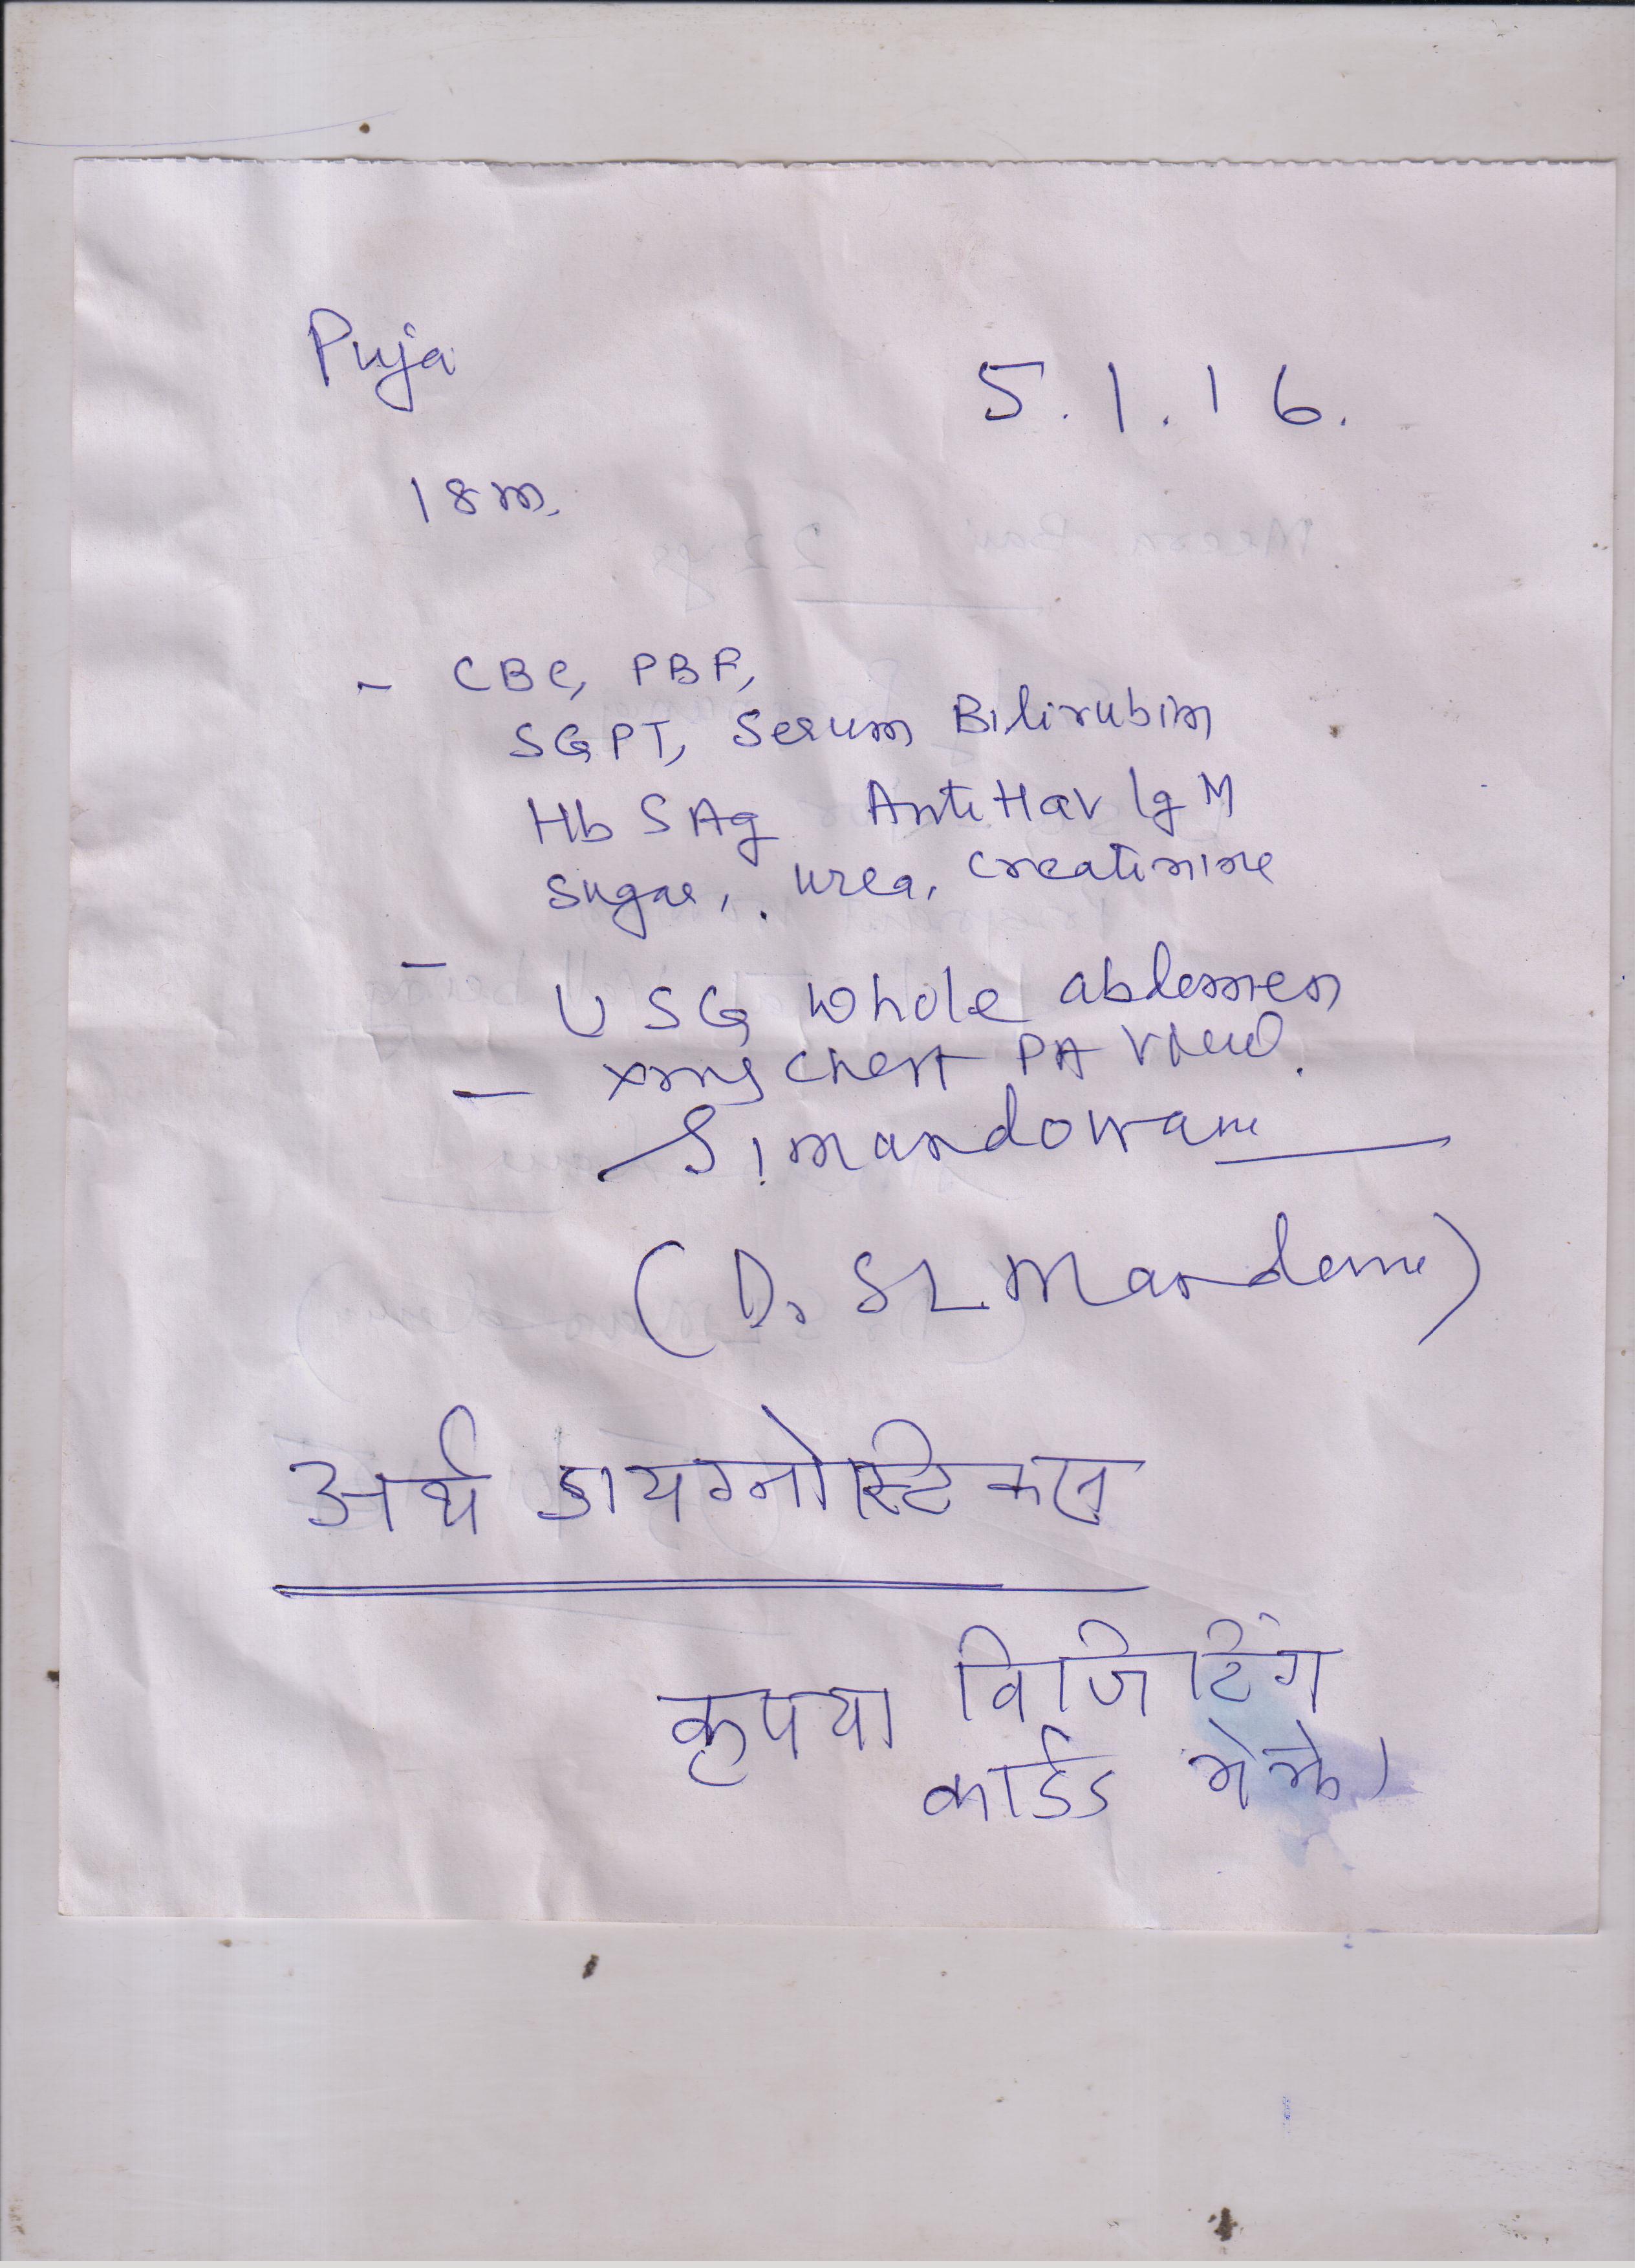 Puja
5.1.16.
18m.
- CBC, PBF,
SGPT, Serum Bilirubin
HbSAg Anti Hav IgM
Sugar, urea, creatinine
- USG whole abdomen
- xray chest PA view.
(D. SL Mandowara)
अर्थ डायग्नोस्टिकस
कृपया विजिटिंग
कार्ड भेजे।